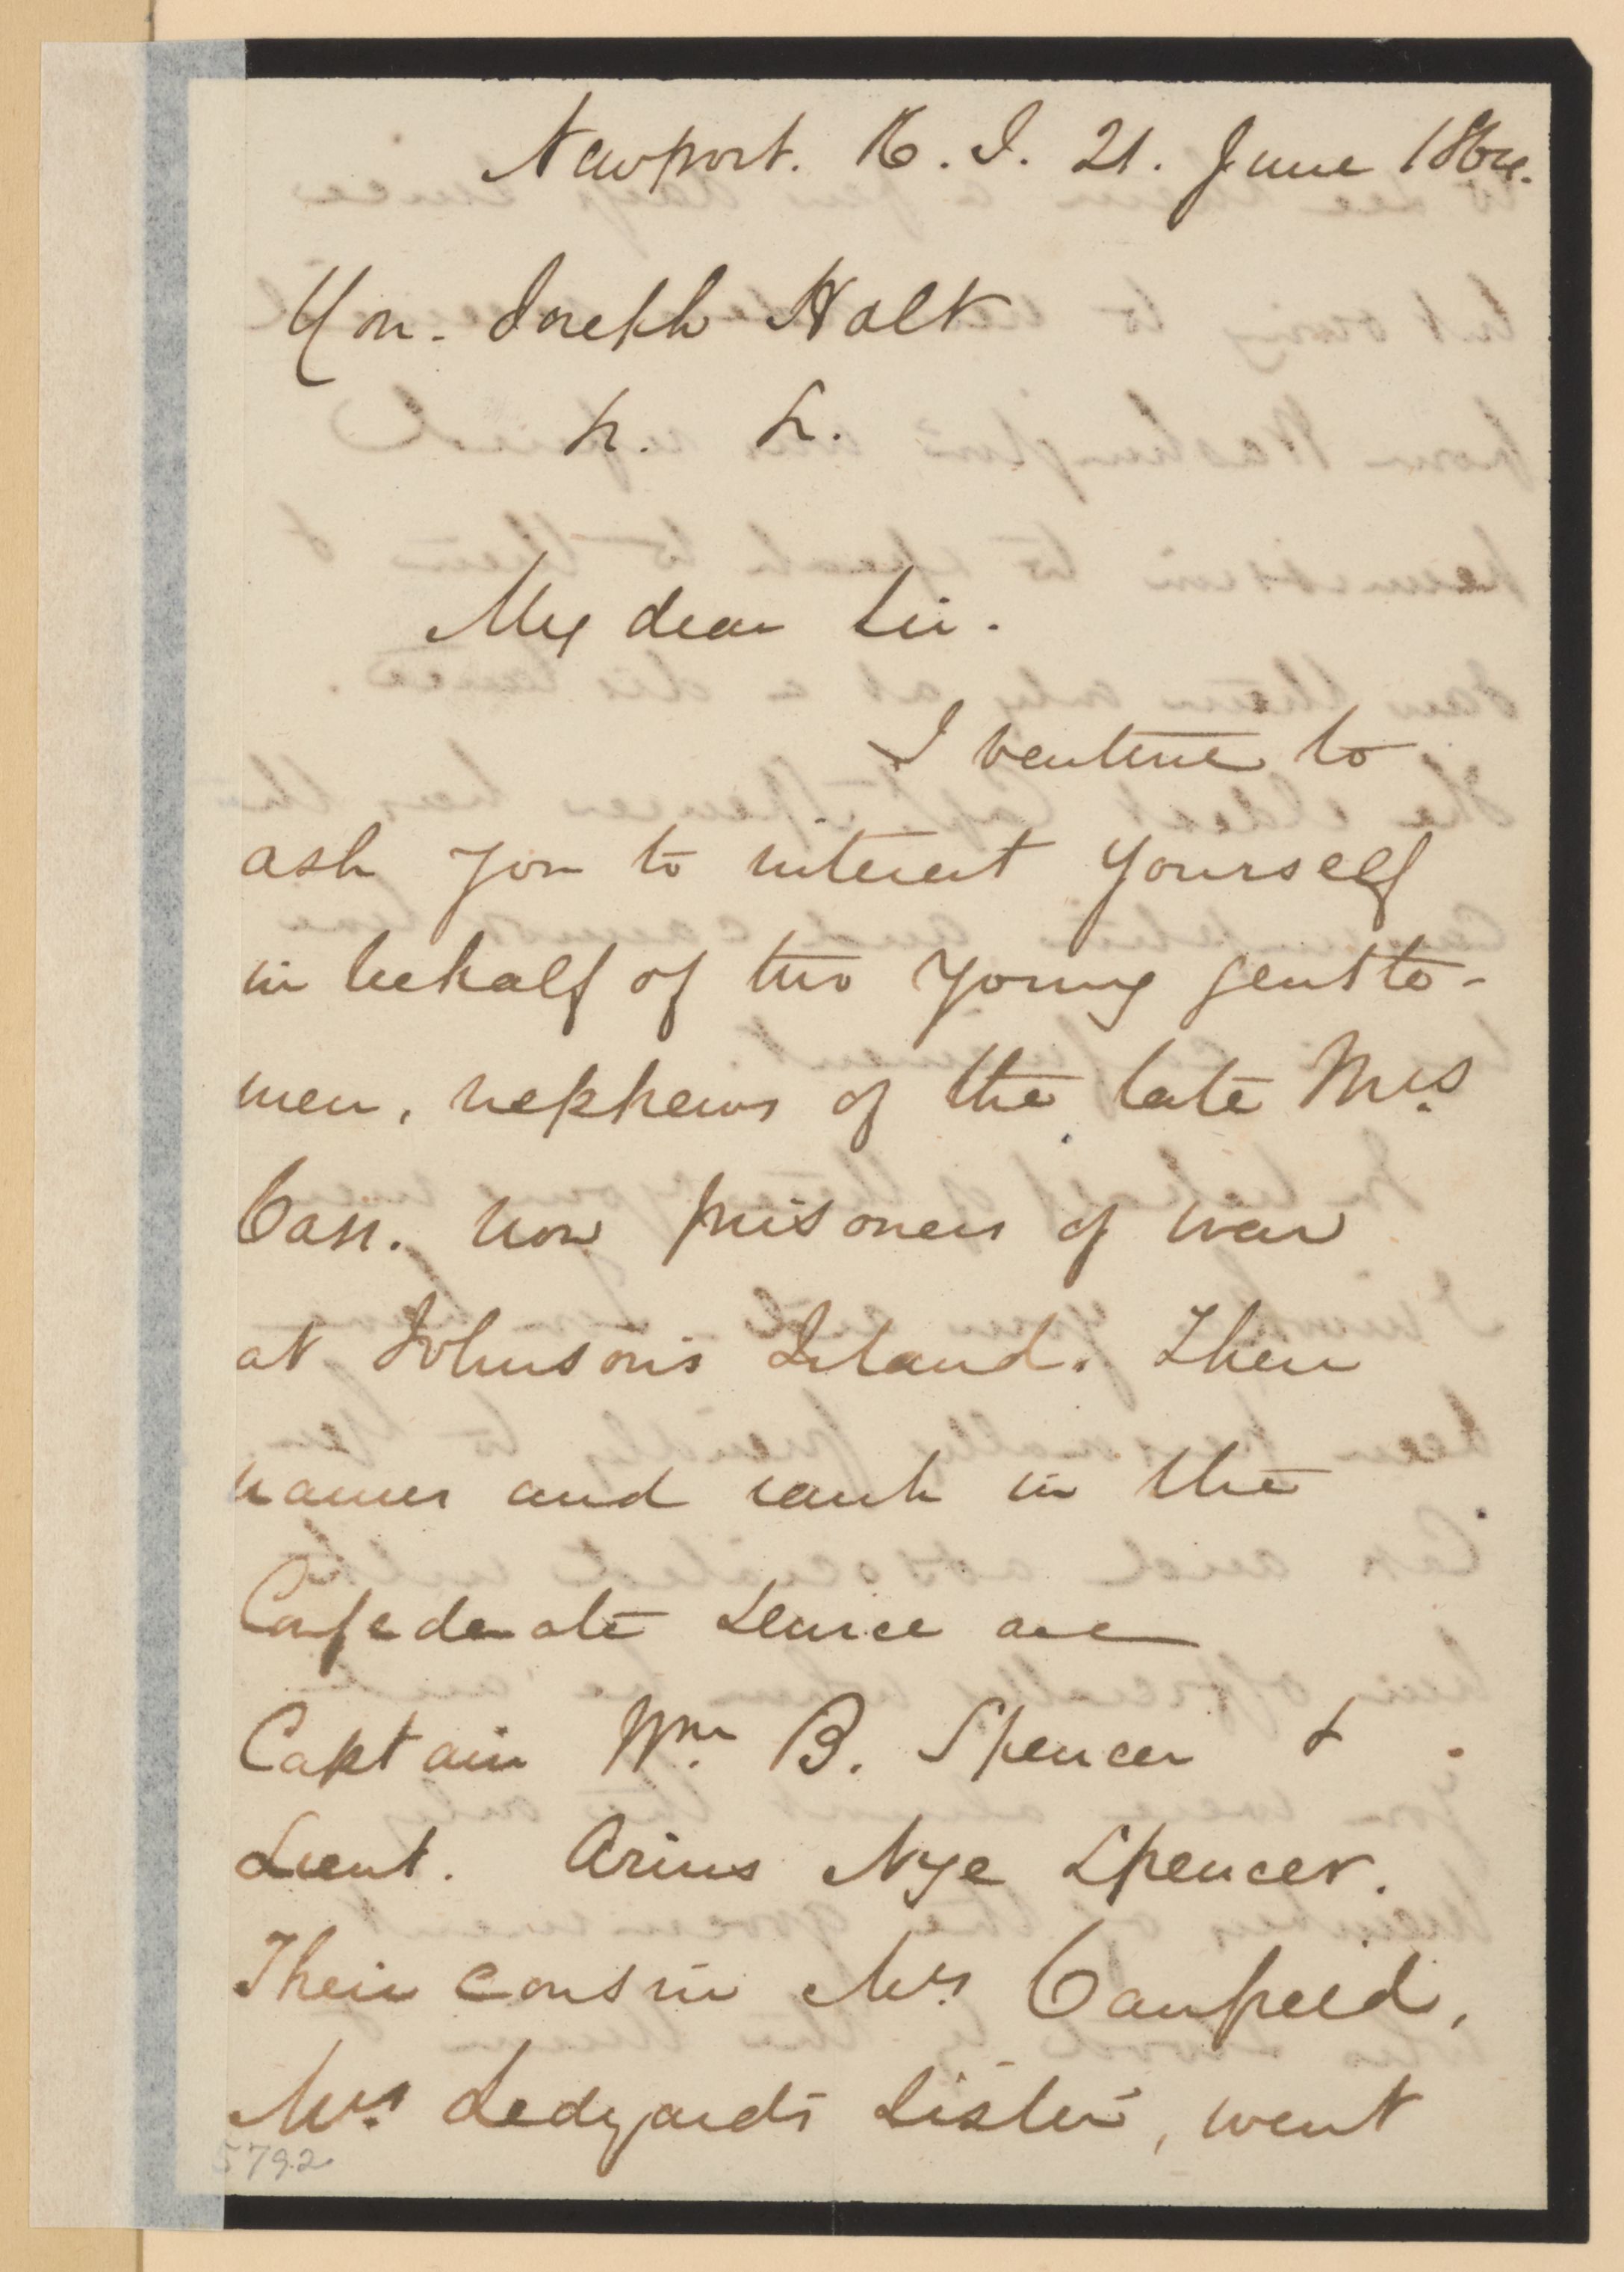 Newport. R. I. 21. June 1864.
Hon. Joseph Holt
My dear Sir.
I venture to
ask you to interest yourself
in behalf of two young gentle-
men, nephews of the late Mrs.
Cass. now prisoners of war
at Johnson's Island. Their
names and rank in the
Confederate Service are
Captain Wm. B. Spencer &
Lieut. Arius Nye Spencer.
Their cousin Mrs. Canfield,
Mrs. Ledyard's Sister, went
5792